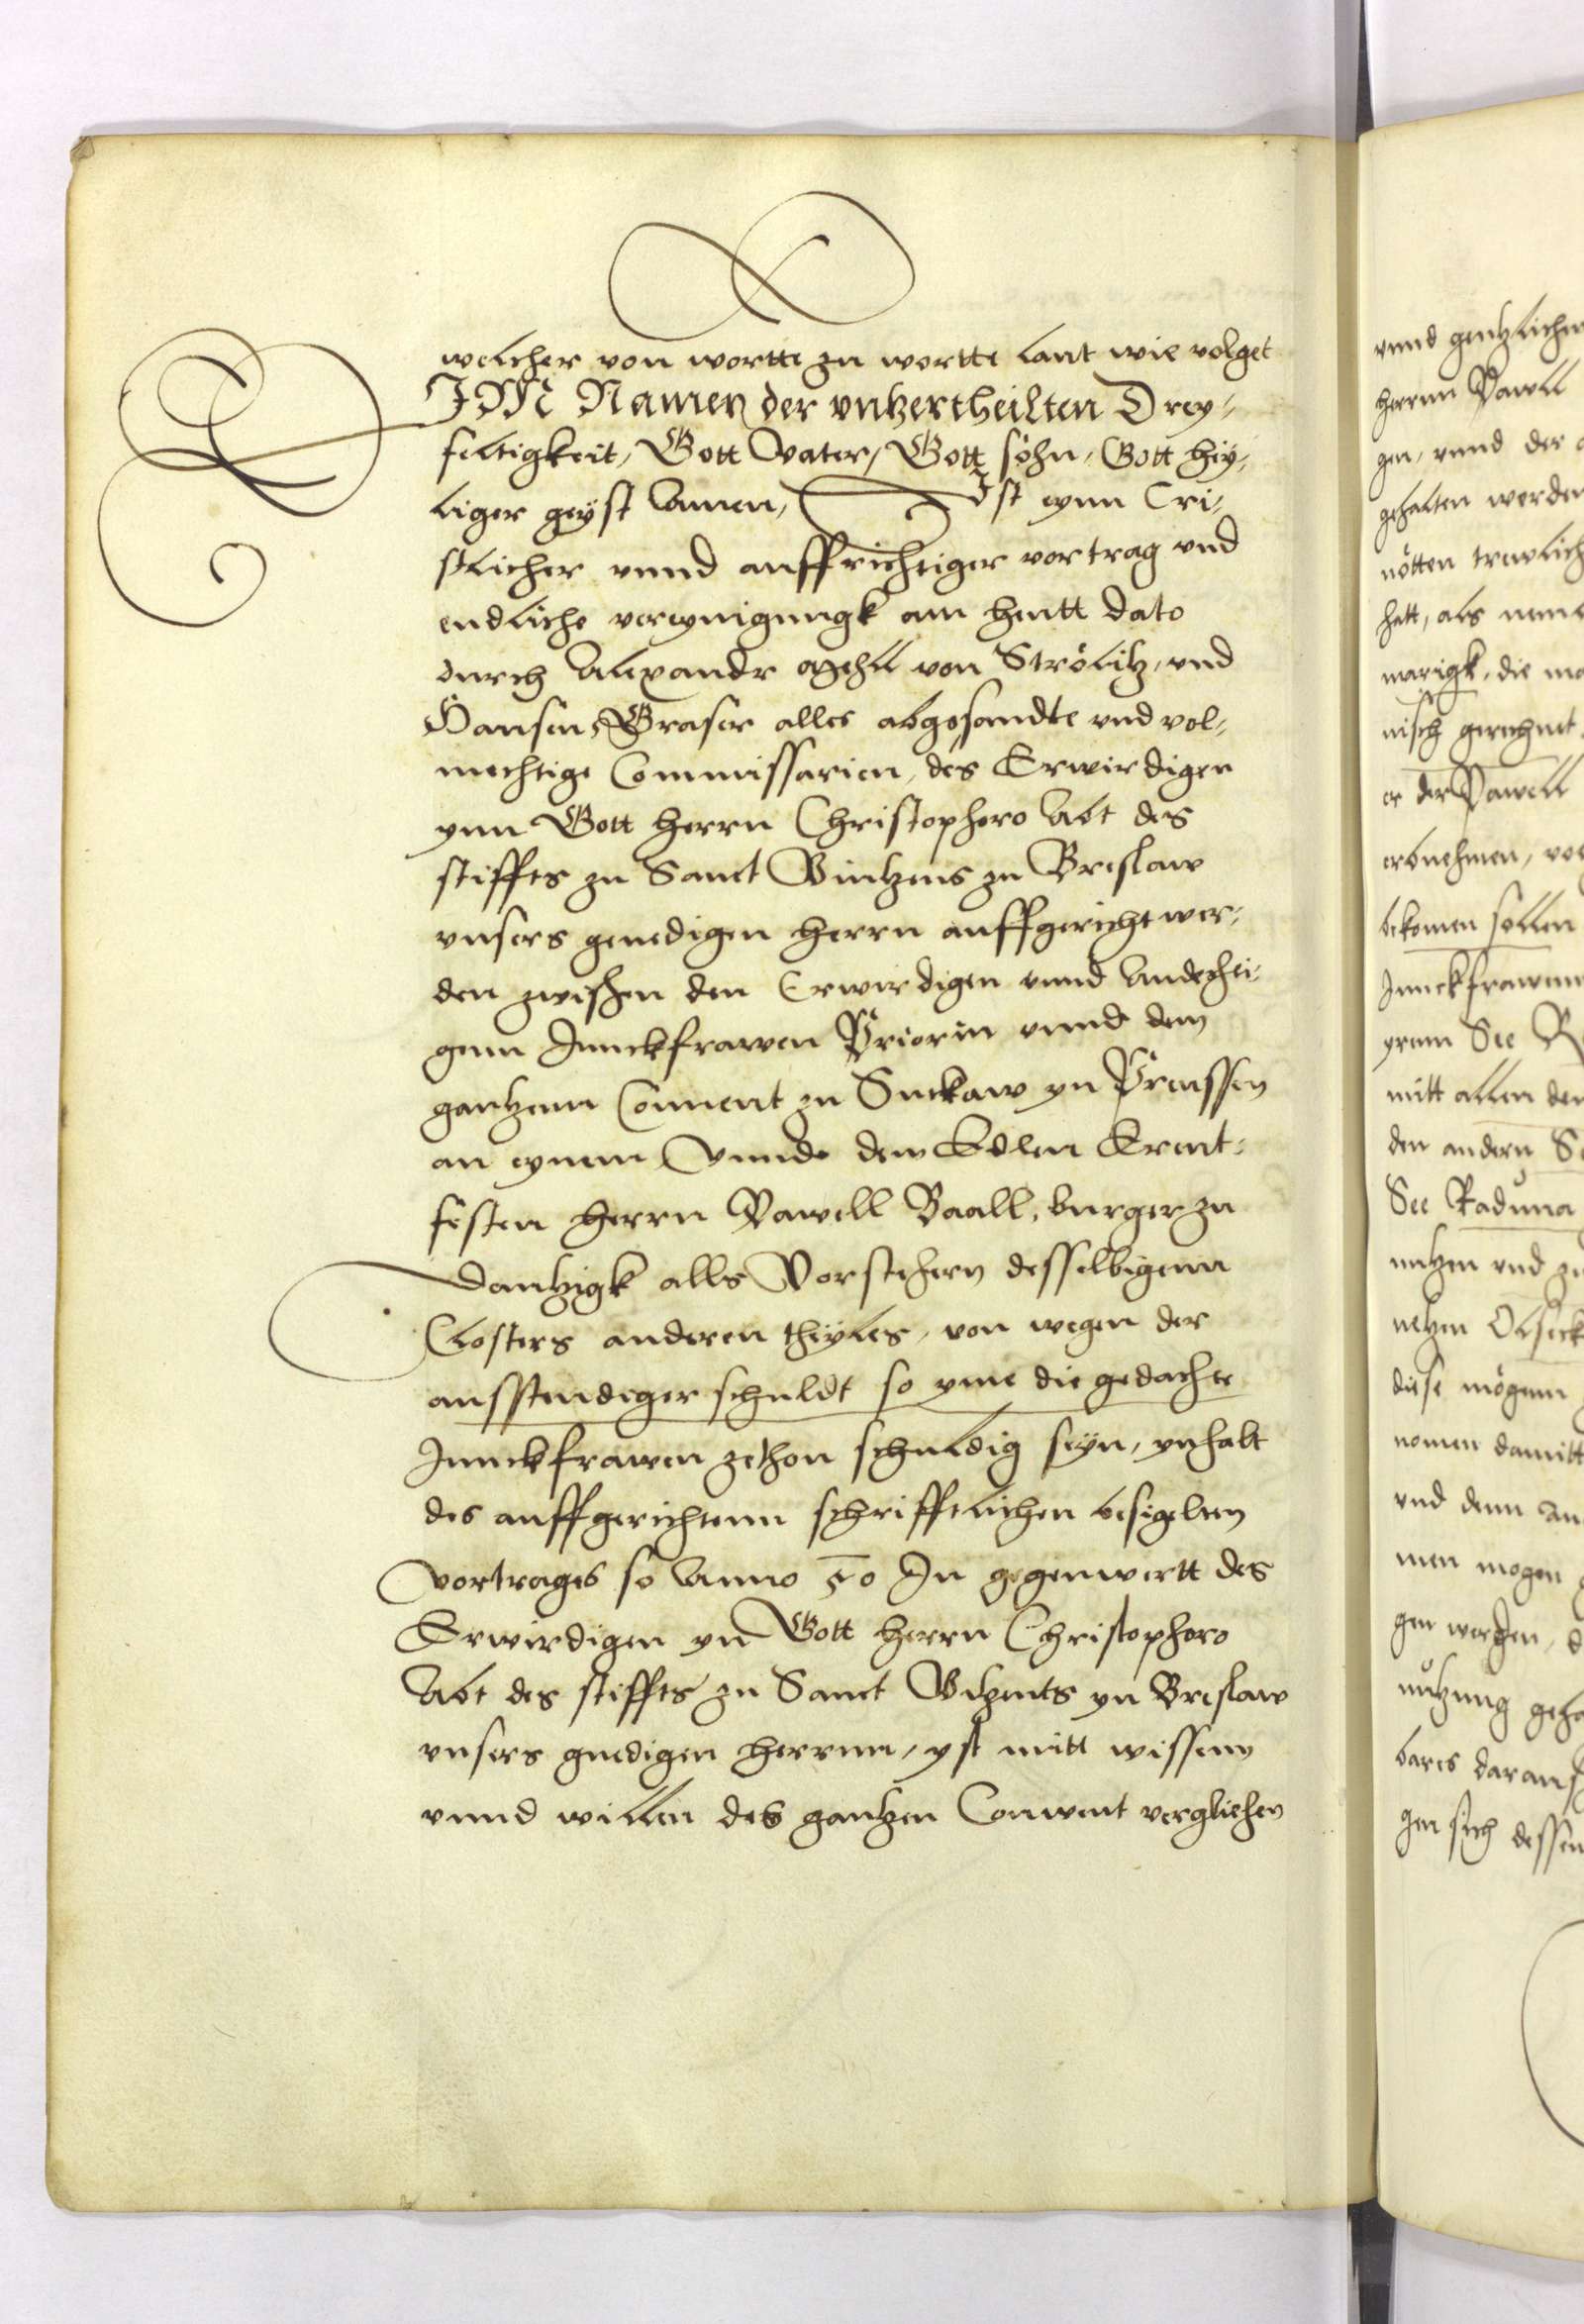 welcher von wortte zu wortte laut wie volget
IM Namen der vntzertheilten Drey-
feltigkeit, Gott Vater, Gott söhn, Gott hey-
liger geyst Amen, Ist eynn Cri-
stlicher vnnd auffrichtiger vortrag vnd
endliche vereynigungk am heutt dato
durch Alexandr von Strölitz, vnd
Hansen Graser alles abgesandte vnd vol-
mechtige Commissarien, des Erwirdigen
ynn Gott herrn Christophero Abt des
stiffts zu Sanct Vintzens zu Breslaw
vnsers genedigen herrn auffgericht wer-
den zwischen den Erwirdigen vnnd Andechti-
genn Junckfrawen Priorin vnnd dem
gantzenn Conuent zu Suckaw yn Preussen
an eynem Vnnd dem Edlen Erent-
festen herrn Pawell Baall, burger zu
Dantzigk alls Vorstehern desselbigenn
Closters anderen theyles, von wegen der
ausstendiger schuldt so yme die gedachte
Junckfrawen zethon schuldig seyn, ynhalt
des auffgerichtenn schrifftlichen besigelten
vortrages so Anno 50 In gegenwertt des
Erwirdigen yn Gott herrn Christophoro
Abt des stiffts zu Sanct Vitzents yn Breslaw
vnsers gnedigen herrnn, yst mitt wissenn
vnnd willen des gantzen Conwent vergliehen
vnnd gentzlichen
herrnn Pawell
gen, vnnd der
gehalten werden
nötten trewlich
hatt, als
marigk, die
nisch gerechnet
er der Pawell
erbnehmen,
bekomen sollen
Junckfrawenn
yrenn See
mitt allen den
den andern
See Raduna
nutzen vnd zu
netzen
diese mögenn
nomen damitt
vnd denn
men mogen
gen werden,
nutzung
bares
gen sich dessen